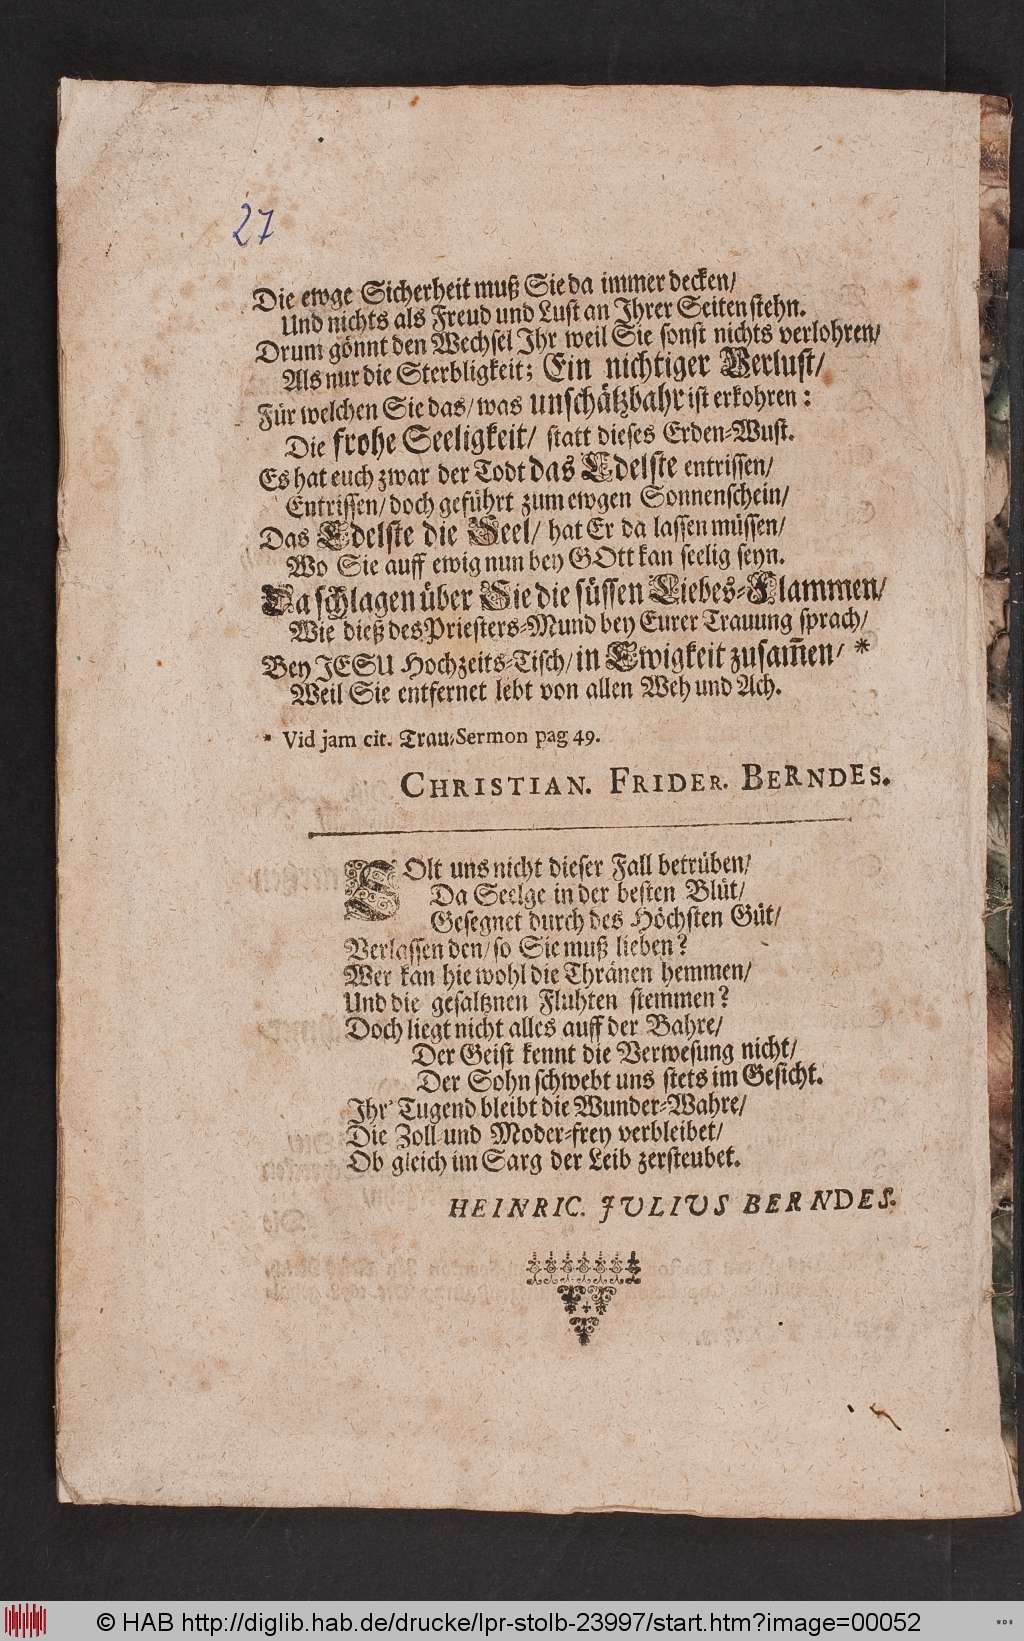 27
Die ewge Sicherheit muß Sie da immer decken/
Und nichts als Freud und Lust an Ihrer Seiten stehn.
Drum gönnt den Wechsel Ihr weil Sie sonst nichts verlohren/
Als nur die Sterbligkeit; Ein nichtiger Verlust/
Für welchen Sie das/ was unschätzbahr ist erkohren:
Die frohe Seeligkeit/ statt dieses Erden-Wust.
Es hat euch zwar der Todt das Edelste entrissen/
Entrissen/ doch geführt zum ewgen Sonnenschein/
Das Edelste die Seel/ hat Er da lassen müssen/
Wo Sie auff ewig nun bey GOtt kan seelig seyn.
Da schlagen über Sie die süssen Liebes-Flammen/
Wie dieß des Priesters-Mund bey Eurer Trauung sprach/
Bey JESU Hochzeits-Tisch/ in Ewigkeit zusam̃en/ *
Weil Sie entfernet lebt von allen Weh und Ach.
* Vid jam cit. Trau-Sermon pag 49.
CHRISTIAN. FRIDER. BERNDES.
SOlt uns nicht dieser Fall betrüben/
Da Seelge in der besten Blüt/
Gesegnet durch des Höchsten Güt/
Verlassen den/ so Sie muß lieben?
Wer kan hie wohl die Thränen hemmen/
Und die gesaltznen Fluhten stemmen?
Doch liegt nicht alles auff der Bahre/
Der Geist kennt die Verwesung nicht/
Der Sohn schwebt uns stets im Gesicht.
Ihr' Tugend bleibt die Wunder-Wahre/
Die Zoll und Moder-frey verbleibet/
Ob gleich im Sarg der Leib zersteubet.
HEINRIC. JULIUS BERNDES.
© HAB http://diglib.hab.de/drucke/lpr-stolb-23997/start.htm?image=00052